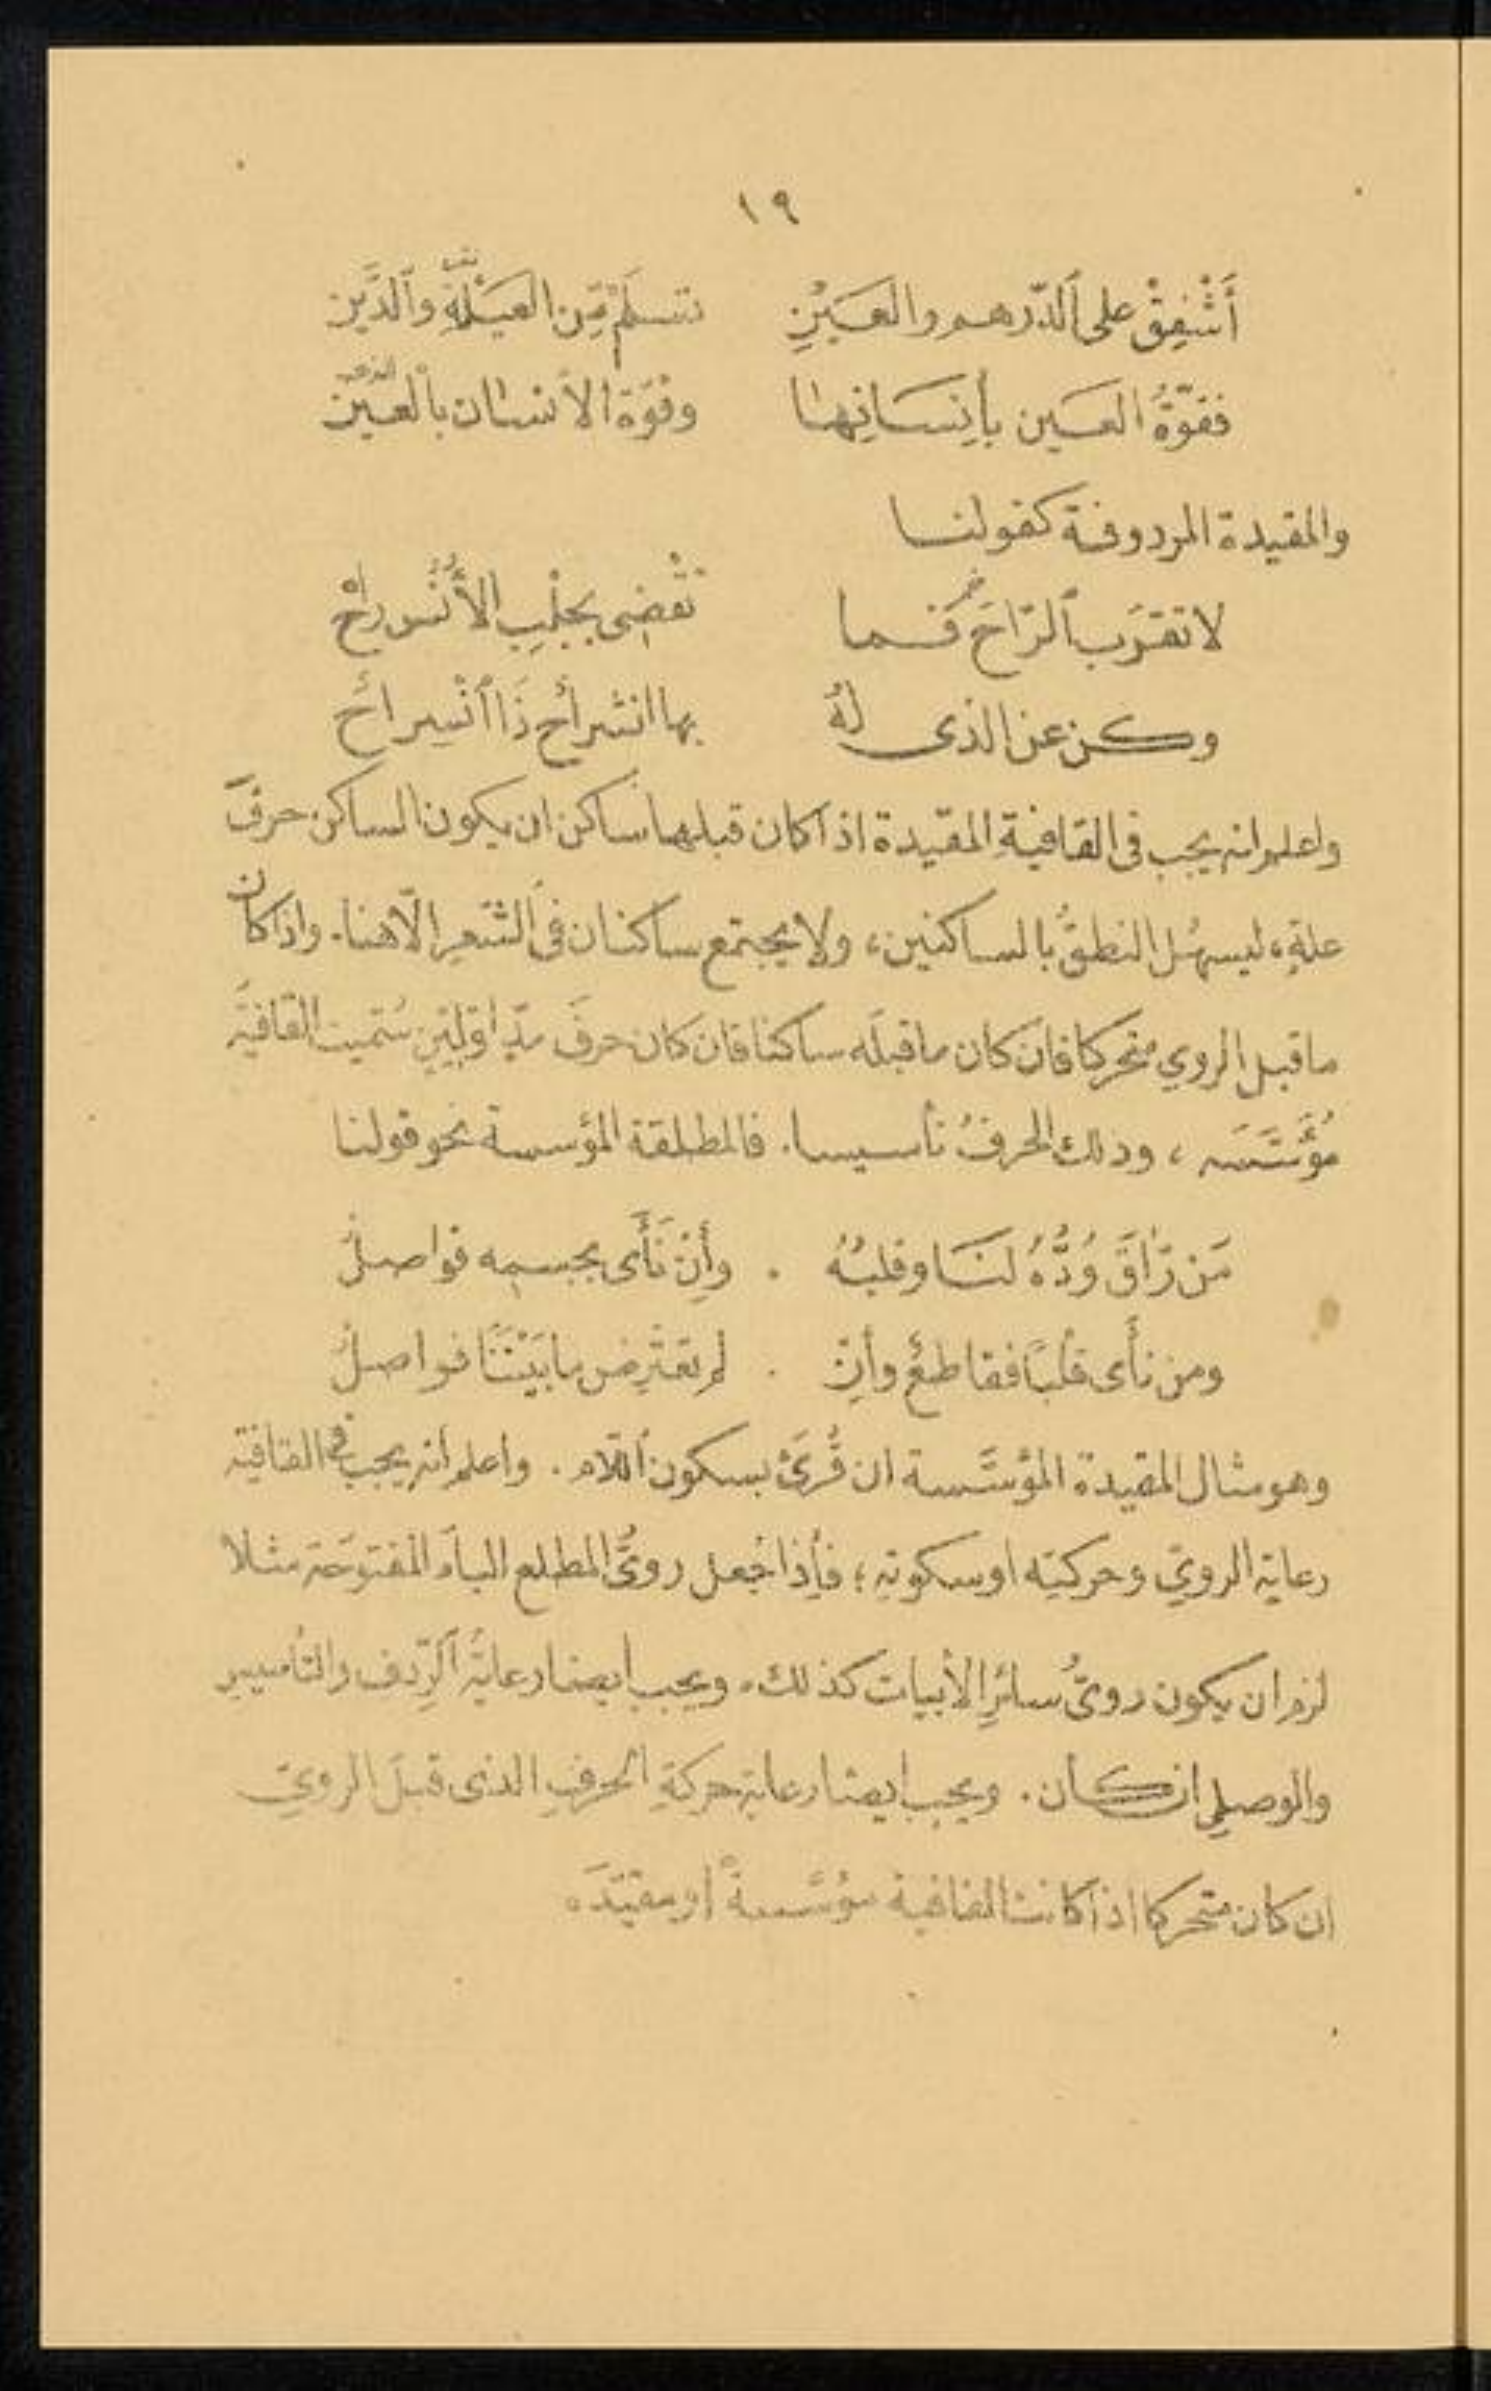 ١٩
أَشْفِقْ على ٱلدّرهم والعَيْنِ تسلَمْ مِّن العَيْلَةِ وٱلدَّين
فقوّةُ العَين بأِنسَانِها وقوّة الأنسان بالعَين
والمقيدة المردوفة كقولنا
لا تقرَب ٱلرّاحَ فما تقْضِى بجلْبِ الأُنس راحْ
وكن عن الذى لهُ بها انشراحٌ ذَا ٱنْسِراحْ
واعلم انه يجب فى القافيةِ المقيّدة اذا كان قبلها ساكن ان يكون الساكن حرفَ
علةٍ، ليسهُل النطقُ بالساكنين، ولا يجتمع ساكنان فى ٱلشّعرِ الّا هنا. واذا كان
ما قبل الروي متحركا فان كان ما قبلَه ساكنا فان كان حرفَ مدٍّ اولِينٍ سُمّيت القافيةُ
مُؤَسَّسَه، وذلك الحرفُ تأسيسا. فالمطلقة المؤسسة نحو قولنا
مَن رَاقَ وُدُّهُ لنَا وقلبُهُ . وأِنْ نَأَى بجسمِه فواصلُ
ومن نأَى قلبًا فقاطعٌ وأِنْ . لم تعتَرِض ما بَيْنَنَا فواصلُ
وهو مثال المقيدة المؤسَّسة ان قُرِئَ بسكون ٱللّام. واعلم انه يجب فى القافية
رعاية الرويّ وحركتِه او سكونِه؛ فأِذا جُعل روىُّ المطلع الباءَ المفتوحَة مثلا
لزم ان يكون روىُّ سائرِ الأبيات كذلك. ويجب ايضا رعايةُ ٱلرِّدف والتأسيس
والوصلِ ان كان. ويجب ايضا رعاية حركةِ الحرفِ الذى قبلَ الرويّ
ان كان متحركا اذا كانت القافية مؤسَّسةً أو مقيّدَه